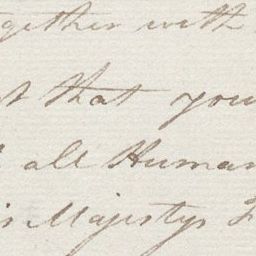 gether with
t that you
all Human
is Majestys